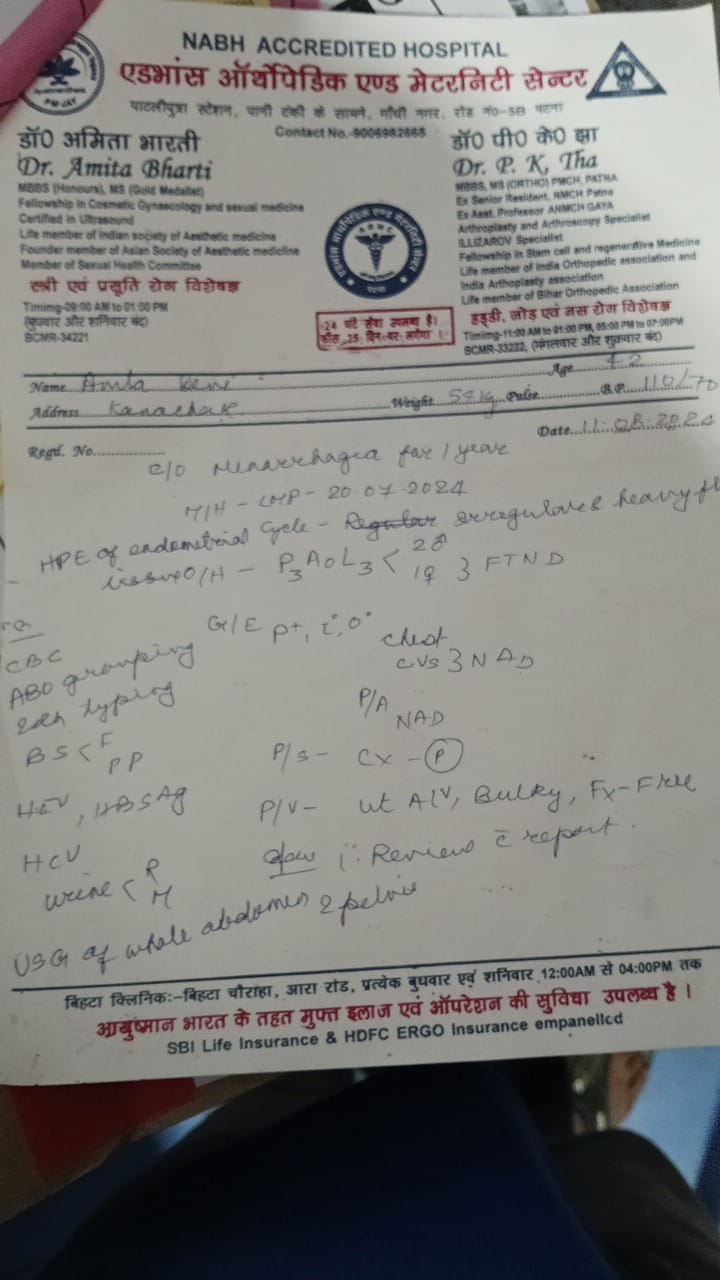 NABH ACCREDITED HOSPITAL
एडभांस ऑर्थोपेडिक एण्ड मेटरनिटी सेन्टर
PM-JAY
पाटलीपुत्रा स्टेशन, पानी टंकी के सामने, गाँधी नगर, रोड नं०-5B पटना
Contact No.-9006982665
डॉ० अमिता भारती
Dr. Amita Bharti
MBBS (Honours), MS (Gold Medalist)
Fellowship in Cosmetic Gynaecology and sexual medicine
Certified in Ultrasound
Life member of Indian society of Aesthetic medicine
Founder member of Asian Society of Aesthetic medicline
Member of Sexual Health Committee
स्त्री एवं प्रसूति रोग विशेषज्ञ
Timimg-09:00 AM to 01:00 PM
(बुधवार और शनिवार बंद)
BCMR-34221
डॉ० पी० के० झा
Dr. P. K, Tha
MBBS, MS (ORTHO) PMCH, PATNA
Ex Senior Resident, NMCH Patna
Ex Asst. Professor ANMCH GAYA
Arthroplasty and Arthroscopy Specialist
ILLIZAROV Specialist
Fellowship in Stem call and regenerative Medicine
Life member of India Orthopedic association and
India Arthoplasty association
Life member of Bihar Orthopedic Association
हड्डी, जोड़ एवं नस रोग विशेषज्ञ
Timimg-11:00 AM to 01:00 PM, 05:00 PM to 07:00PM
BCMR-33222, (मंगलवार और शुक्रवार बंद)
24 घंटे सेवा उपलब्ध है।
फीस 25 दिन पर लगेगा।
Name Age 42
Address Weight 54 kg Pulse B.P. 110/70
Regd. No. Date 11.08.2024
C/O Menorrhagia for 1 year
M/H - LMP - 20.07.2024
HPE of endometrial Cycle - Regular irregular & heavy
tissue O/H - P3A0L3 < 2♂ 1♀ } FTND
G/E P+, i°, o°
chest
CVS } NAD
CBC
ABO grouping
& Rh typing
P/A
NAD
BS < F PP
P/S - CX - (P)
HIV, HBSAg
P/V - ut A/V, Bulky, Fx - Free
HCV
Review c̄ report.
urine < R M
USG of whole abdomen & pelvis
बिहटा क्लिनिकः-बिहटा चौराहा, आरा रोड, प्रत्येक बुधवार एवं शनिवार 12:00AM से 04:00PM तक
आयुष्मान भारत के तहत मुफ्त इलाज एवं ऑपरेशन की सुविधा उपलब्ध है।
SBI Life Insurance & HDFC ERGO Insurance empanelled